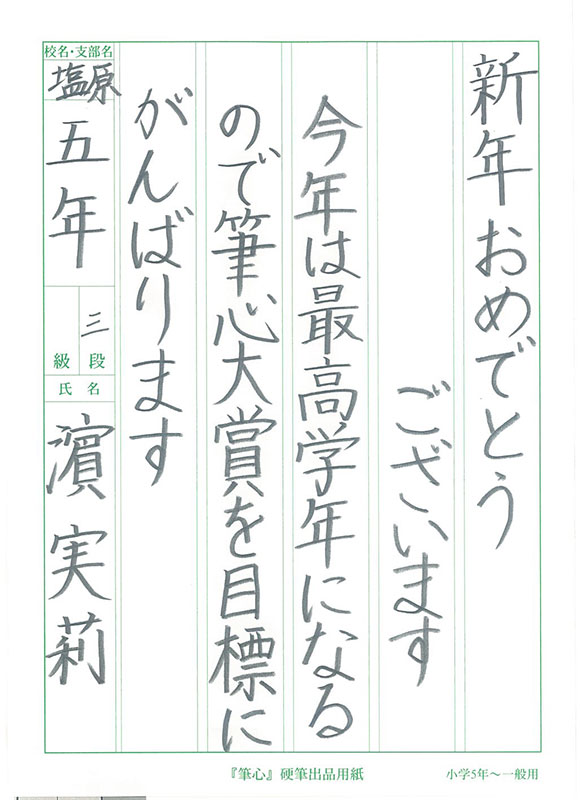 新年おめでとう
ございます
今年は最高学年になる
ので筆心大賞を目標に
がんばります
校名・支部名
塩原
五年
三
級 段
氏 名
濵 実莉
『筆心』硬筆出品用紙
小学5年〜一般用